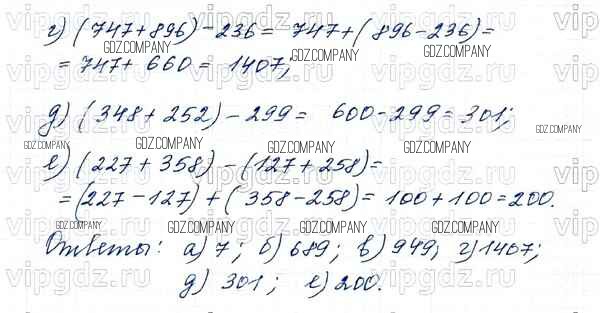 г) (747+896)-236= 747+(896-236)=
= 747+ 660 = 1407;
д) (348+252)-299= 600-299=301;
е) (227+358)-(127+258)=
=(227-127)+(358-258)=100+100=200.
Ответы: а) 7; б) 689; в) 949; г) 1407;
д) 301; е) 200.